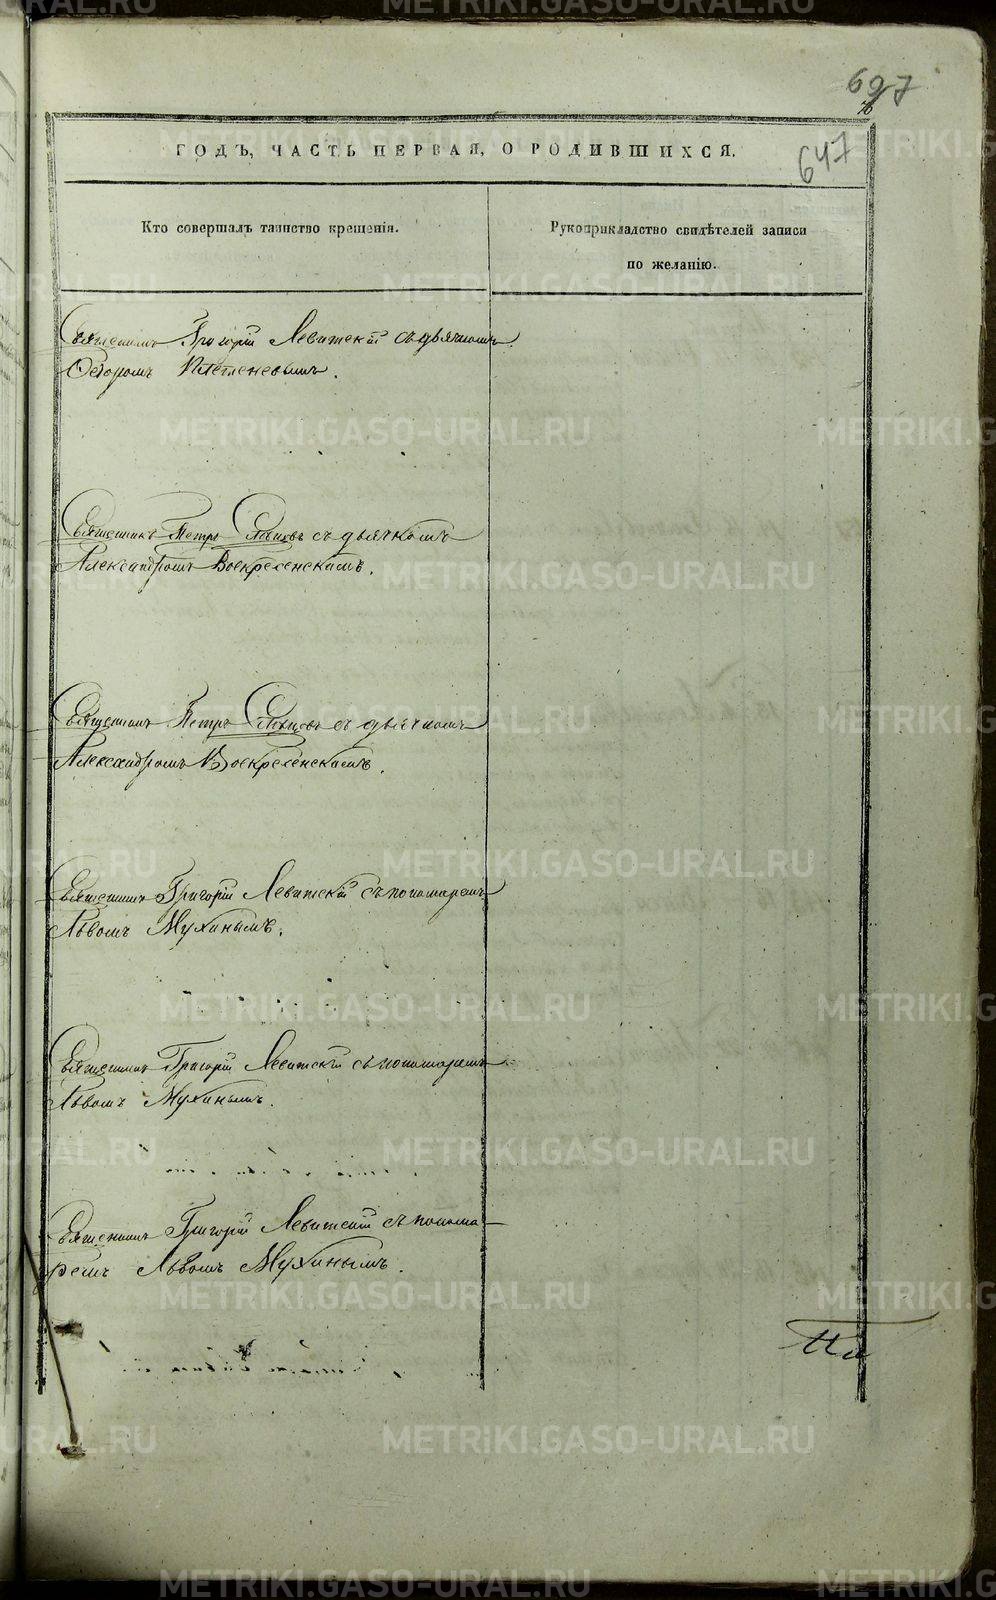 697
647
ГОДЪ, ЧАСТЬ ПЕРВАЯ, О РОДИВШИХСЯ.
Кто совершалъ таинство крещенія.
Рукоприкладство свидѣтелей записи
по желанію.
Священникъ Григорій Левитскій съ дьячкомъ
Ѳедоромъ Плетеневымъ.
Священникъ Петръ Словцовъ съ дьячкомъ
Александромъ Воскресенскимъ.
Священникъ Петръ Словцовъ съ дьячкомъ
Александромъ Воскресенскимъ.
Священникъ Григорій Левитскій съ пономаремъ
Львомъ Мухинымъ.
Священникъ Григорій Левитскій съ пономаремъ
Львомъ Мухинымъ.
Священникъ Григорій Левитскій съ понома-
ремъ Львомъ Мухинымъ.
METRIKI.GASO-URAL.RU